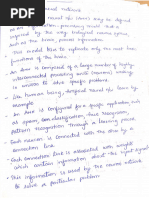 Neural network
An neural n/w (ANN) may be defined
as an information-processing model that is
inspired by the way biological nervous system,
such as the brain, process information.
This model tries to replicate only the most basic
functions of the brain.
An ANN is composed of a large number of highly
interconnected processing units (neurons) working
in unison to solve specific problems.
Like human being, artificial neural n/w learn by
example
An ANN is configured for a specific application, such
as spam, classification, face recognition,
pattern recognition through a learning process
Each neuron is connected with the other by a
connection link
Each connection link is associated with weight
which contain information about the input signal
This information is used by the neuron network
to solve a particular problem